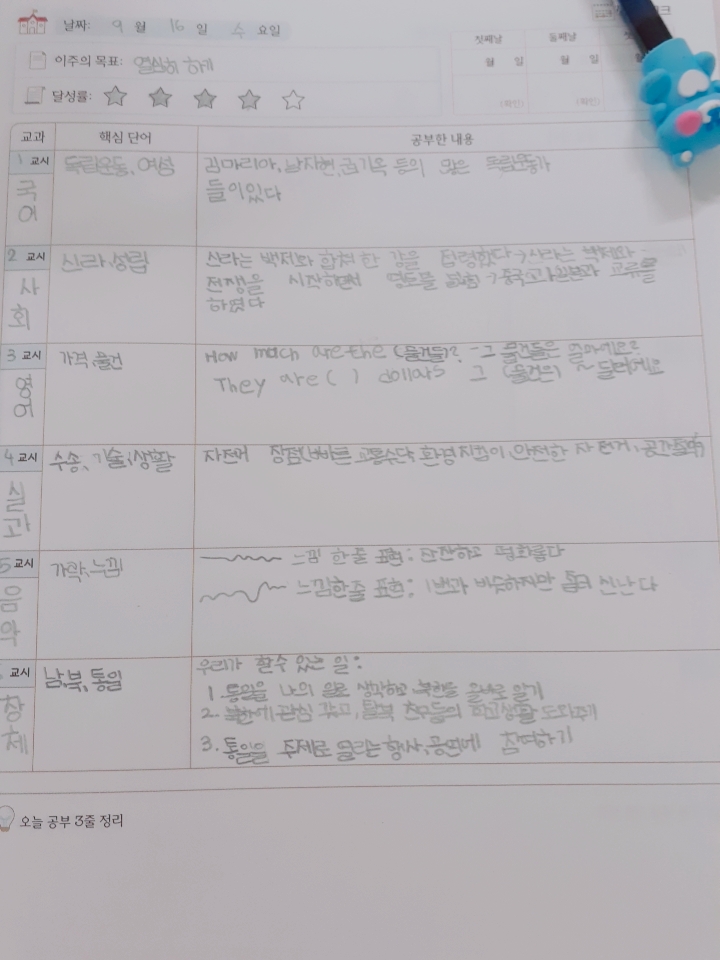 날짜: 9 월 16 일 수 요일
이주의 목표: 열심히 하기
달성률:
첫째날 둘째날
월 일 월 일
(확인) (확인)
교과 핵심 단어 공부한 내용
1 교시 독립운동, 여성 김마리아, 남자현, 권기옥 등의 많은 독립운동가
국어 들이있다
2 교시 신라, 성립 신라는 백제와 합쳐 한 강을 점령했다→신라는 백제와
사회 전쟁을 시작하면서 영토를 넓힘→중국과 일본과 교류를
하였다
3 교시 가격, 물건 How much are the (물건들)? -그 물건들은 얼마예요?
영어 They are ( ) dollars 그 (물건은) ~달러예요
4 교시 수송, 기술, 생활 자전거 장점(빠른 교통수단, 환경지킴이, 안전한 자전거, 공간
실과
5 교시 가락, 느낌 느낌 한줄 표현: 잔잔하고 평화롭다
음악 느낌한줄 표현: 1번과 비슷하지만 신난다
교시 남,북, 통일 우리가 할수 있는 일:
창체 1. 통일을 나의 일로 생각하고 북한을 올바로 알기
2. 북한에 관심 갖고, 탈북 친구들의 학교생활 도와주기
3. 통일을 주제로 열리는 행사, 공연에 참여하기
오늘 공부 3줄 정리